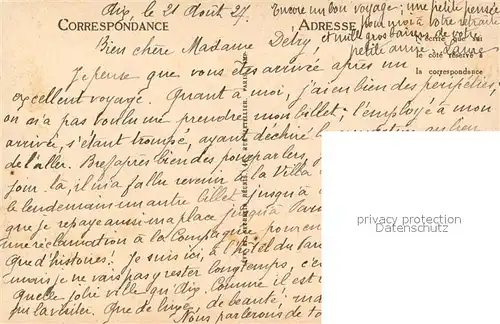 Aix, le 21 Août 27.
Encore un bon voyage; une petite pensée
pour moi à votre retraite
CORRESPONDANCE
ADRESSE
et mille gros baisers de votre
petite amie
le côté réservé à
la correspondance
Bien chère Madame Détry,
Je pense que vous êtes arrivée après un
excellent voyage. Quant à moi, j'ai eu bien des péripéties;
on n'a pas voulu me prendre mon billet; l'employé à mon
arrivée, s'étant trompé, ayant déchiré
de l'aller. Bref après bien des pourparlers,
jour-là, il m'a fallu revenir à la Villa
le lendemain un autre billet jusqu'à
que je repaye aussi ma place jusqu'à Paris
une réclamation à la Compagnie pour
Que d'histoires! Je suis ici, à l'hôtel du
mais je ne vais pas y rester longtemps, c'e
Quelle jolie ville qu'Aix. Comme il est
pu la visiter. Que de linge, de beauté; ma
Nous parlerons de to
protected by copyright
Datenschutz